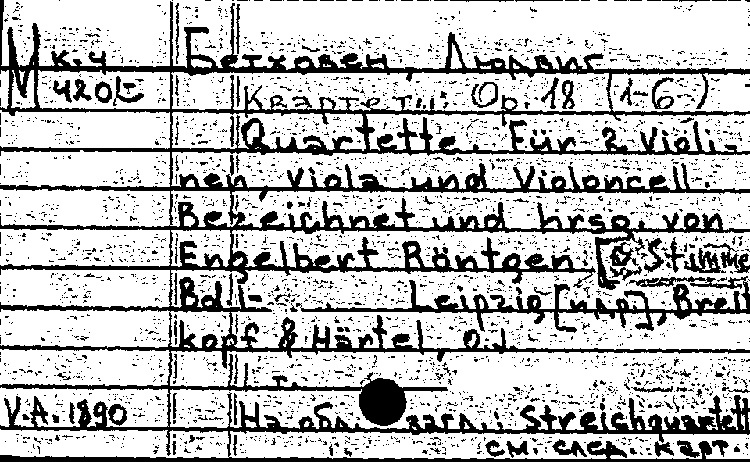 М к.4 Бетховен, Людвиг
420 Квартеты: Op. 18 (1-6-)
Quartette. Für 2 Violi-
nen, Viola und Violoncell.
Bezeichnet und hrsg. von
Engelbert Röntgen. [Stimme
Bd.1- Leipzig, [п.пр.], Breit
kopf & Härtel, o.J.
т.
V.A. 1890 На обл. загл.: Streichquartett
см. след. карт.